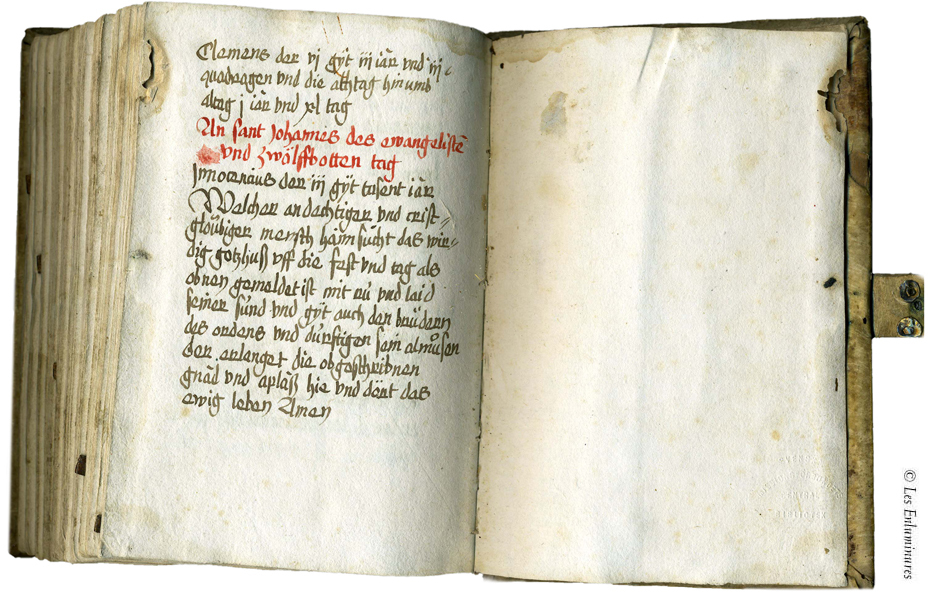 Clemens der vj gÿt iij iăr vnd iij
quadragen vnd die achtag hinumb
altag j iăr vnd xl tag
An sant Johannes des ewangelistē
vnd zwölffbotten tag
Innocencius der iij gÿt tusent iăr
Welcher andechtiger vnd crist=
gloübiger mensch haim sůcht das wir=
dig gotzhuß vff die fest vnd tag als
obnen gemeldet ist mit rů vnd laid
seiner sünd vnd gÿt auch den brüdern
des ordens vnd dürftigen sein almůsen
der erlanget die obgeschribnen
gnăd vnd aplăß hie vnd dört das
ewig leben Amen
© Les Enluminures